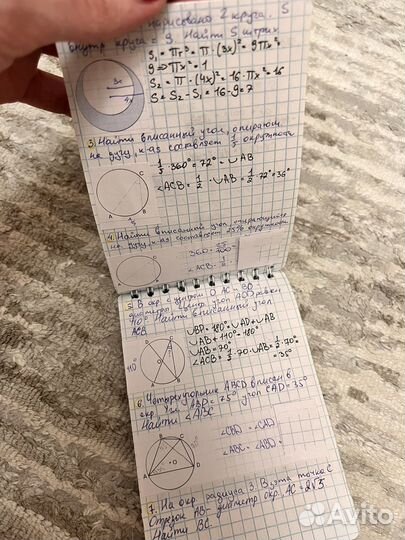 нарисовано 2 круга. S
внутр круга = 9 Найти S штрих
S₁ = πr² = π · (3x)² = 9πx²
9 ⇒ πx² = 1
S₂ = π · (4x)² = 16 · πx² = 16
S = S₂ - S₁ = 16 - 9 = 7
3x
4x
3. Найти вписанный угол, опирающ.
на дугу, к-ая составляет 1/5 окружности
1/5 · 360° = 72° - ∪AB
∠ACB = 1/2 · ∪AB = 1/2 · 72° = 36°
C
A
B
4. Найти вписанный угол, опирающийся
на дугу, к-ая составляет 25% окружности
360 ·
∠ACB ·
C
A
B
5. В окр с центром O AC и BD
диаметры. Центр угол AOD равен
110° Найти вписанный угол
ACB
∪BD = 180° = ∪AD + ∪AB
∪AB + 110° = 180°
∪AB = 70°
∠ACB = 1/2 · 70 · ∪AB = 1/2 · 70° =
= 35°
110°
6. Четырехугольник ABCD вписан в
окр. Угол ABD = 75° угол CAD = 35°
Найти ∠ABC
∠CBD = ∠CAD
∠ABC = ∠ABD =
B
C
O
A
D
7. На окр. радиуса 3. Взята точка C
Отрезок AB - диаметр окр. AC = 2√5
Найти BC.
Avito